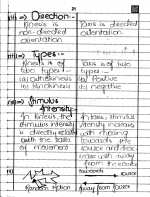 21
iii) → Direction:-
Kinesis is Taxis is directed
non-directed orientation
orientation
iii) → Types:-
Kinesis is of Taxis is of
two types two types
(a) (a) Positive
(b) Klinokinesis (b) negative
iv) → Stimulus
Intensity:-
In kinesis, the In taxis, stimulus
stimulus intensity intensity increases
is directly related with moving
with the towards the
of movement source and
with away
from the source
v) towards source
Random motion away from source